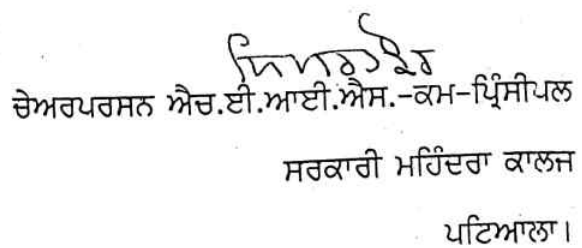 ਚੇਅਰਪਰਸਨ ਐਚ.ਈ.ਆਈ.ਐਸ.-ਕਮ-ਪ੍ਰਿੰਸੀਪਲ
ਸਰਕਾਰੀ ਮਹਿੰਦਰਾ ਕਾਲਜ
ਪਟਿਆਲਾ।